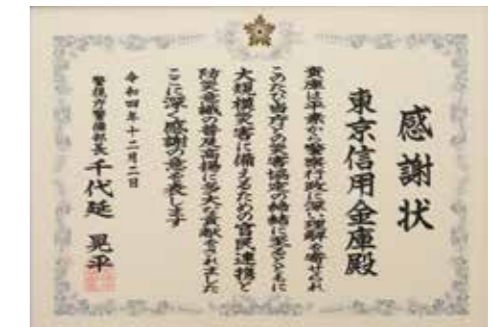 感謝状
東京信用金庫殿
貴庫は平素から警察行政に深い理解を寄せられ
このたび当庁との災害協定の締結に至るとともに
大規模災害に備えるための官民連携と
防災意識の普及高揚に多大な貢献をされました
ここに深く感謝の意を表します
令和四年十二月二日
警視庁警備部長 千代延 晃平